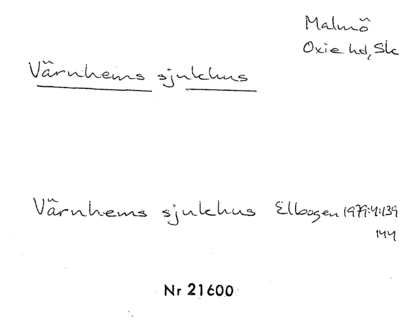 Malmö
Oxie hd, Sk
Värnhems sjukhus
Värnhems sjukhus Elbogen 1979:4:139
144
Nr 21600